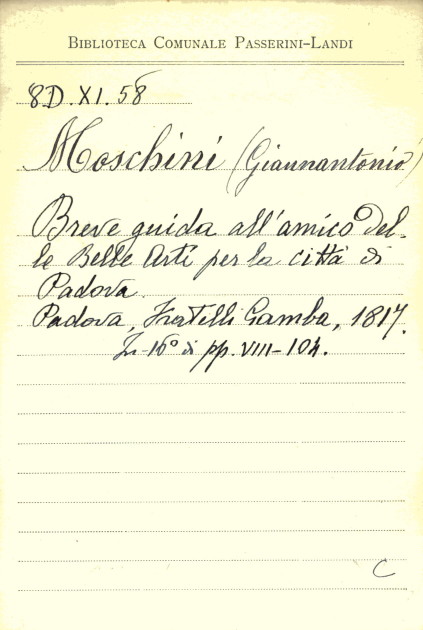 BIBLIOTECA COMUNALE PASSERINI-LANDI
8D.XI.58
Moschini (Giannantonio)
Breve guida all'amico del-
le Belle Arti per la città di
Padova.
Padova, Fratelli Gamba, 1817.
In-16° di pp. VIII-104.
C